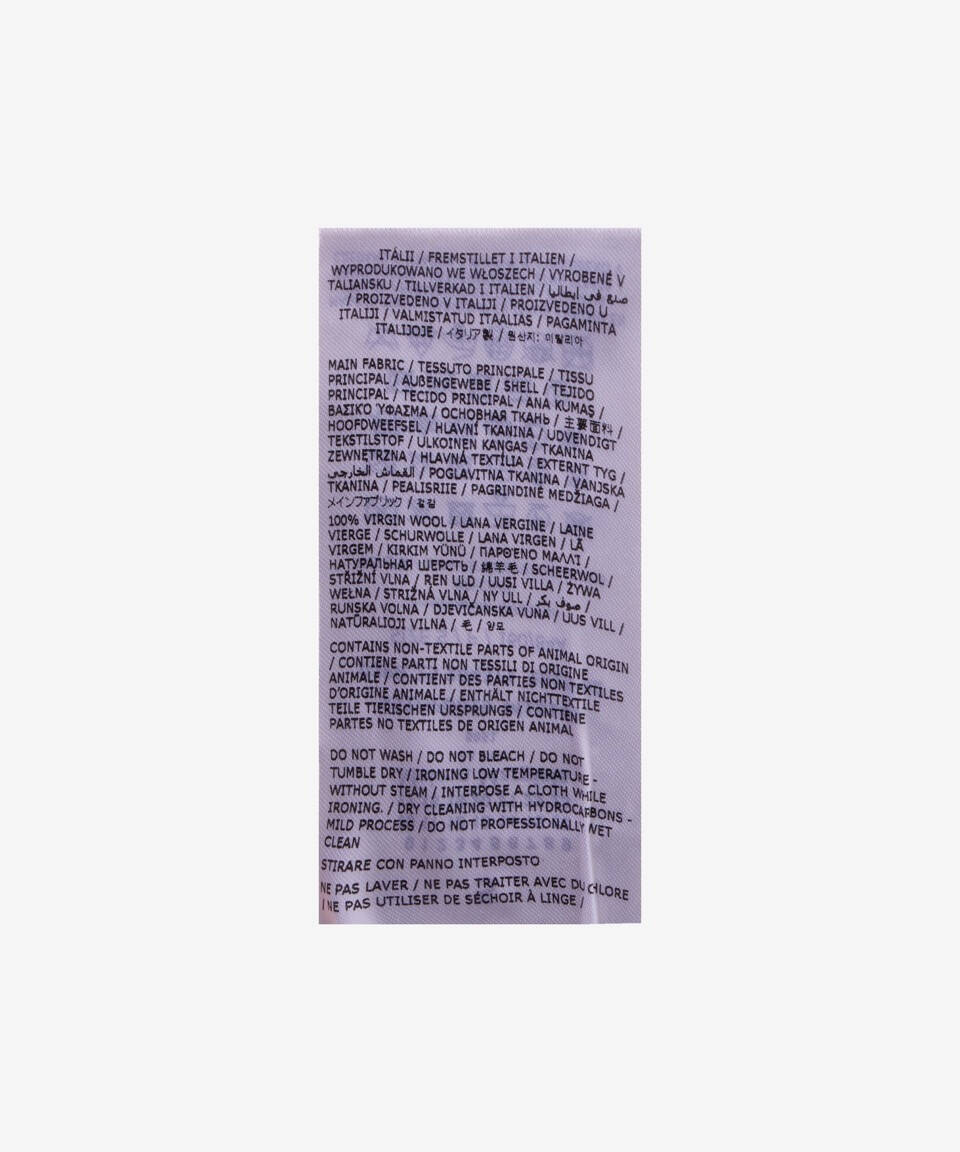 ITÁLII / FREMSTILLET I ITALIEN /
WYPRODUKOWANO WE WŁOSZECH / VYROBENÉ V
TALIANSKU / TILLVERKAD I ITALIEN / صنع في ايطاليا
/ PROIZVEDENO V ITALIJI / PROIZVEDENO U
ITALIJI / VALMISTATUD ITAALIAS / PAGAMINTA
ITALIJOJE / イタリア製 / 원산지: 이탈리아
MAIN FABRIC / TESSUTO PRINCIPALE / TISSU
PRINCIPAL / AUßENGEWEBE / SHELL / TEJIDO
PRINCIPAL / TECIDO PRINCIPAL / ANA KUMAŞ /
ΒΑΣΙΚΌ ΎΦΑΣΜΑ / ОСНОВНАЯ ТКАНЬ / 主要面料 /
HOOFDWEEFSEL / HLAVNÍ TKANINA / UDVENDIGT
TEKSTILSTOF / ULKOINEN KANGAS / TKANINA
ZEWNĘTRZNA / HLAVNÁ TEXTÍLIA / EXTERNT TYG /
القماش الخارجي / POGLAVITNA TKANINA / VANJSKA
TKANINA / PEALISRIIE / PAGRINDINĖ MEDŽIAGA /
メインファブリック / 겉감
100% VIRGIN WOOL / LANA VERGINE / LAINE
VIERGE / SCHURWOLLE / LANA VIRGEN / LÃ
VIRGEM / KIRKIM YÜNÜ / ΠΑΡΘΈΝΟ ΜΑΛΛΊ /
НАТУРАЛЬНАЯ ШЕРСТЬ / 綿羊毛 / SCHEERWOL /
STŘIŽNÍ VLNA / REN ULD / UUSI VILLA / ŻYWA
WEŁNA / STRIŽNÁ VLNA / NY ULL / صوف بكر /
RUNSKA VOLNA / DJEVIČANSKA VUNA / UUS VILL /
NATŪRALIOJI VILNA / 毛 / 양모
CONTAINS NON-TEXTILE PARTS OF ANIMAL ORIGIN
/ CONTIENE PARTI NON TESSILI DI ORIGINE
ANIMALE / CONTIENT DES PARTIES NON TEXTILES
D'ORIGINE ANIMALE / ENTHÄLT NICHTTEXTILE
TEILE TIERISCHEN URSPRUNGS / CONTIENE
PARTES NO TEXTILES DE ORIGEN ANIMAL
DO NOT WASH / DO NOT BLEACH / DO NOT
TUMBLE DRY / IRONING LOW TEMPERATURE -
WITHOUT STEAM / INTERPOSE A CLOTH WHILE
IRONING. / DRY CLEANING WITH HYDROCARBONS -
MILD PROCESS / DO NOT PROFESSIONALLY WET
CLEAN
STIRARE CON PANNO INTERPOSTO
NE PAS LAVER / NE PAS TRAITER AVEC DU CHLORE
/ NE PAS UTILISER DE SÉCHOIR À LINGE /